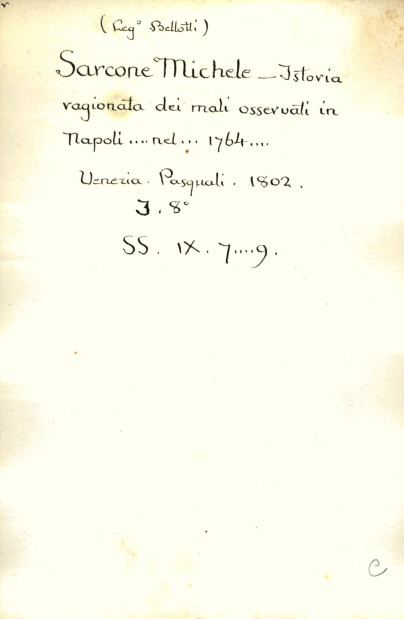 (Leg° Bellotti)
Sarcone Michele — Istoria
ragionata dei mali osservati in
Napoli .... nel ... 1764 ....
Venezia . Pasquali . 1802 .
I . 8°
SS . IX . 7 .... 9 .
C